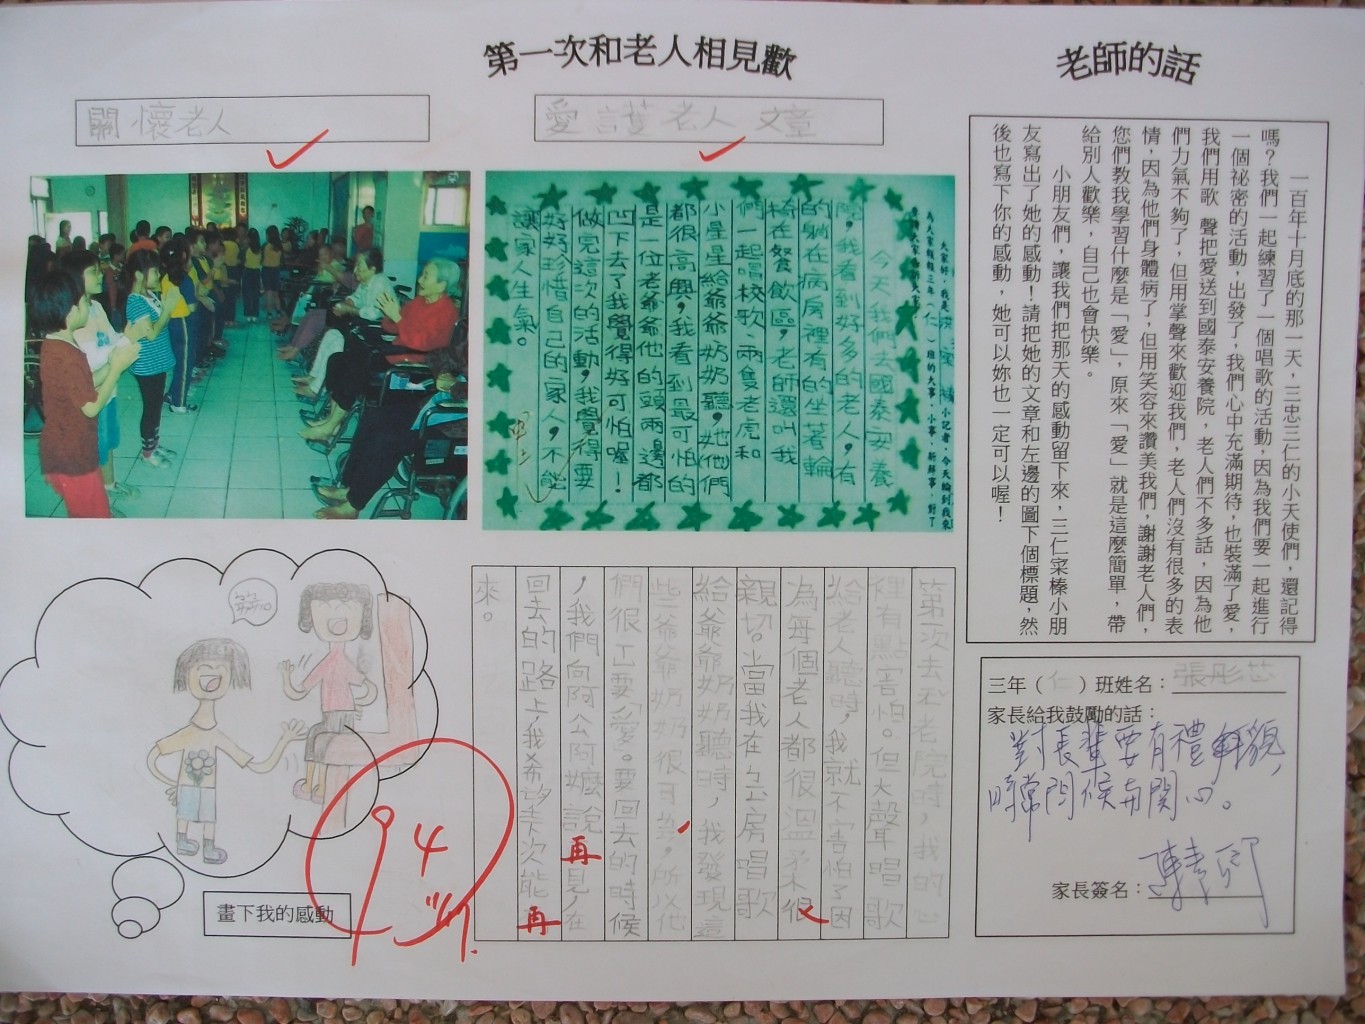 第一次和老人相見歡
老師的話
關懷老人
愛護老人文章
一百年十月底的那一天，三忠三仁的小天使們，還記得
嗎？我們一起練習了一個唱歌的活動，因為我們要一起進行
一個祕密的活動，出發了，我們心中充滿期待，也裝滿了愛，
我們用歌 聲把愛送到國泰安養院，老人們不多話，因為他
們力氣不夠了，但用掌聲來歡迎我們，老人們沒有很多的表
情，因為他們身體病了，但用笑容來讚美我們，謝謝老人們，
您們教我學習什麼是「愛」，原來「愛」就是這麼簡單，帶
給別人歡樂，自己也會快樂。
小朋友們，讓我們把那天的感動留下來，三仁寀榛小朋
友寫出了她的感動！請把她的文章和左邊的圖下個標題，然
後也寫下你的感動，她可以妳也一定可以喔！
今天我們去國泰安養
院，我看到好多的老人，有
的躺在病房裡有的坐著輪
椅在餐飲區，老師還叫我
們一起唱校歌兩隻老虎和
小星星給爺爺奶奶聽，她他們
都很高興，我看到最可怕的
是一位老爺爺他的頭兩邊都
凹下去了我覺得好可怕喔！
做完這次的活動，我覺得要
好好珍惜自己的家人，不能
讓家人生氣。
第一次去老老院時，我的心
裡有點害怕。但大聲唱歌
給老人聽時，我就不害怕了因
為每個老人都很溫柔很
親切。當我在病房唱歌
給爺爺奶奶聽時，我發現這
些爺爺奶奶很可憐，所以他
們很需要愛。要回去的時候
，我們向阿公阿嬤說再見，在
回去的路上，我希望下次能再
來。
再
再
94
畫下我的感動
三年（仁）班姓名：張彤芯
家長給我鼓勵的話：
對長輩要有禮貌，
時常問候與關心。
家長簽名：